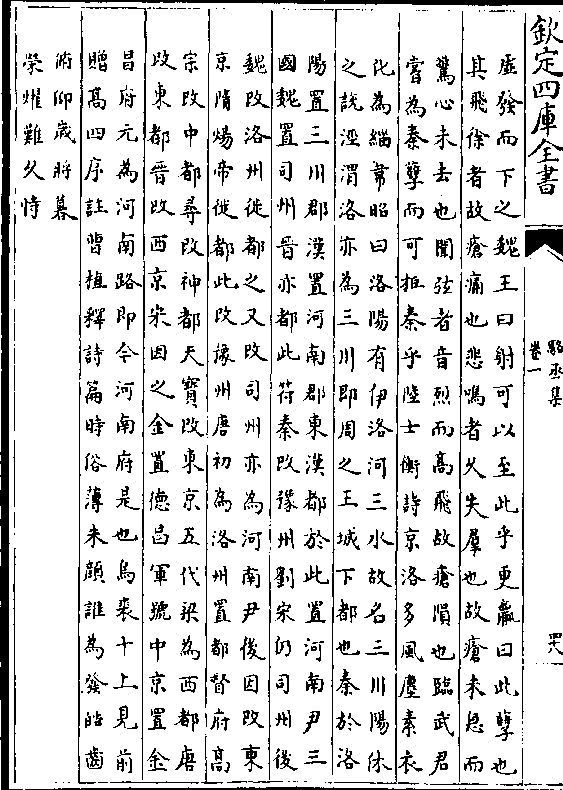 欽定四庫全書
駱丞集
卷一
四八
虛發而下之魏王曰射可以至此乎更羸曰此孽也
其飛徐者故瘡痛也悲鳴者久失羣也故瘡未息而
驚心未去也聞弦者音烈而高飛故瘡隕也臨武君
嘗為秦孽而可拒秦乎陸士衡詩京洛多風塵素衣
化為緇韋昭曰洛陽有伊洛河三水故名三川陽休
之說涇渭洛亦為三川即周之王城下都也秦於洛
陽置三川郡漢置河南郡東漢都於此置河南尹三
國魏置司州晉亦都此苻秦改豫州劉宋仍司州後
魏改洛州徙都之又改司州亦為河南尹後因改東
京隋煬帝徙都此改豫州唐初為洛州置都督府高
宗改中都尋改神都天寶改東京五代梁為西都唐
改東都晉改西京宋因之金置德昌軍號中京置金
昌府元為河南路即今河南府是也烏裘十上見前
贈高四序註曹植釋詩篇時俗薄朱顏誰為發皓齒
俯仰歲將暮
榮耀難久恃